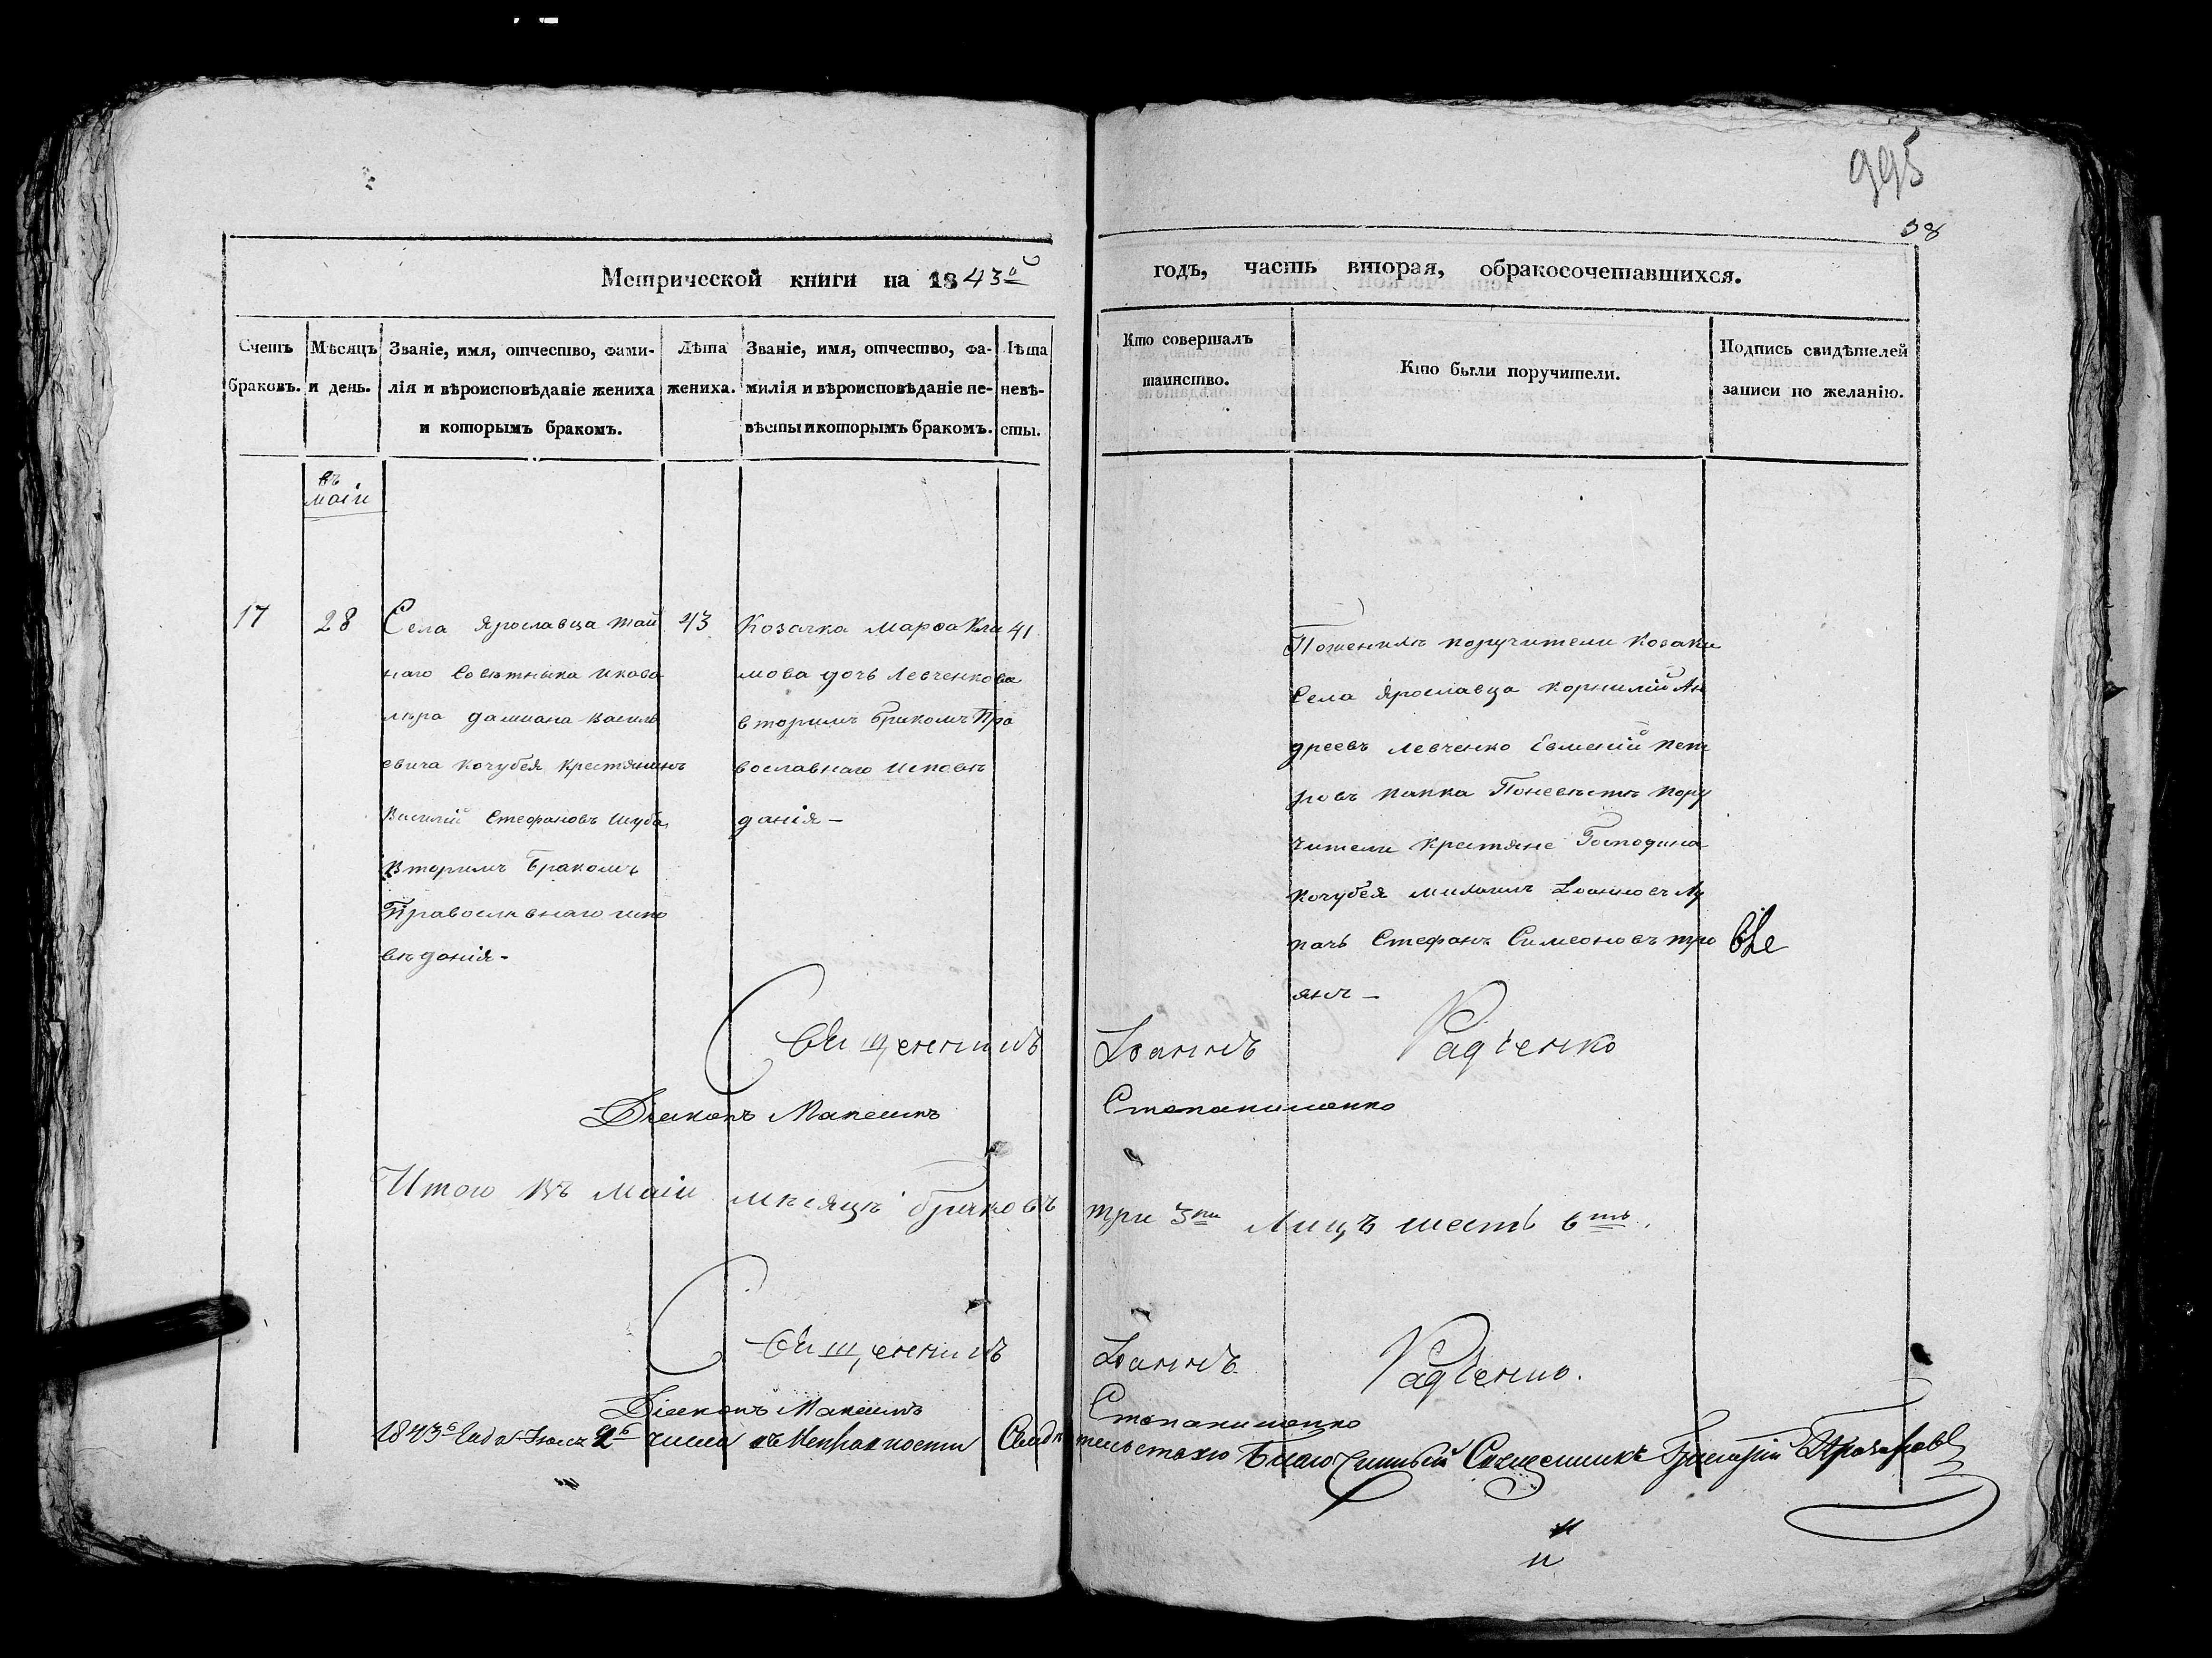 995
38
Метрической книги на 1843й
годъ, часть вторая, обракосочетавшихся.
Счетъ браковъ.
Мѣсяцъ и день.
Званіе, имя, отчество, фами-
лія и вѣроисповѣданіе жениха
и которымъ бракомъ.
Лѣта
жениха.
Званіе, имя, отчество, фа-
милія и вѣроисповѣданіе не-
вѣсты и которымъ бракомъ.
Лѣта
невѣ-
сты.
Кто совершалъ
таинство.
Кто были поручители.
Подпись свидѣтелей
записи по желанію.
въ
маіи
17
28
Села Ярославца тай
наго Совѣтныка икава
лѣра Дамиана Василь
евича Кочубея Крестянинъ
Василій Стефановъ Шуба
вторимъ бракомъ
Православнаго испо
вѣданія -
43
Козачка Марѳа Кли
мова дочь Левченкова
вторимъ бракомъ Пра
вославнаго исповѣ
данія -
41
Поженихѣ поручители козаки
Села Ярославца Корнилій Ан
дреевъ Левченко Евменій Пет
ровъ Папка Поневѣстѣ пору
чители крестяне Господина
Кочубея Михаилъ Іоанновъ
Стефанъ Симеоновъ Тро
янъ -
Священникъ Іоаннъ Радченко
Діаконъ Максимъ Степаниченко
Итого въ маіи мѣсяцѣ браковъ три 3ри Лицъ шесть 6ть.
Священникъ Іоаннъ Радченко.
Діаконъ Максимъ Степаниченко
1843го Года числа въ Исправности Свидѣтельствую Благочинный Священникъ Григорій